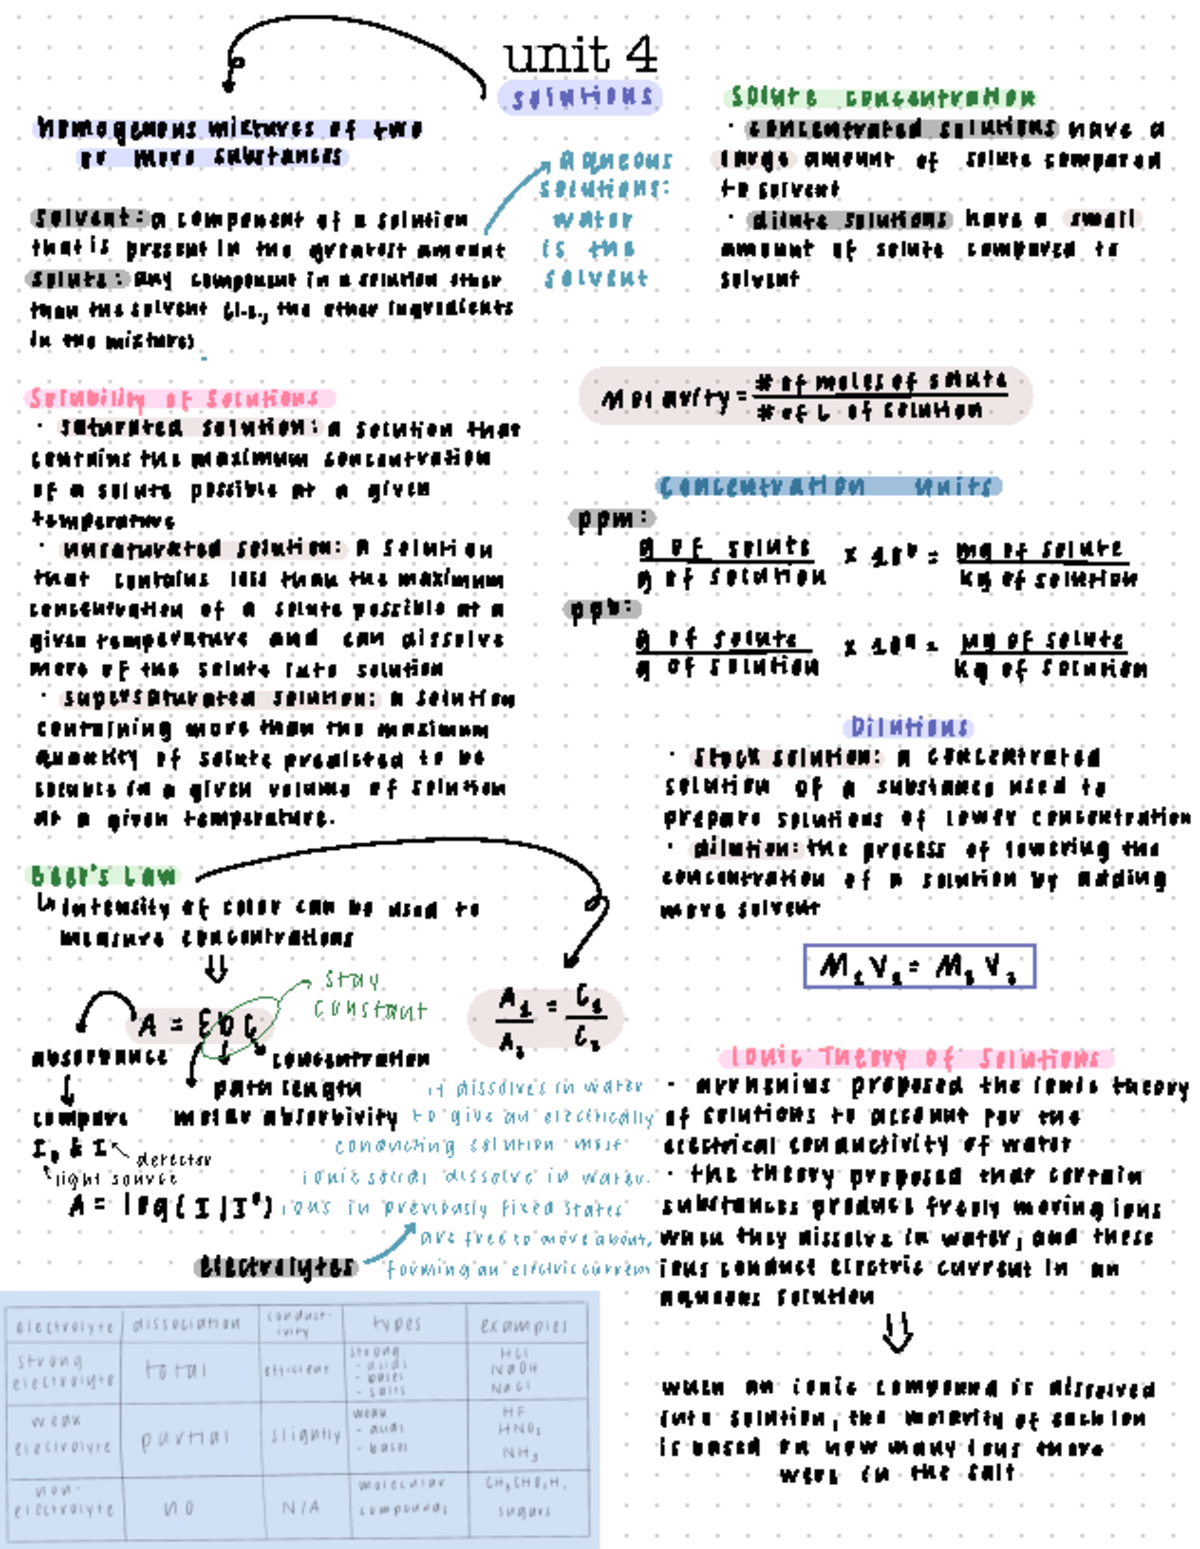 unit 4
solutions
homogenous mixtures of two
or more substances
solvent: a component of a solution
that is present in the greatest amount
solute: any component in a solution other
than the solvent (i.e., the other ingredients
in the mixture)
aqueous
solutions:
water
is the
solvent
solute concentration
· concentrated solutions have a
large amount of solute compared
to solvent
· dilute solutions have a small
amount of solute compared to
solvent
Solubility of Solutions
· saturated solution: a solution that
contains the maximum concentration
of a solute possible at a given
temperature
· unsaturated solution: a solution
that contains less than the maximum
concentration of a solute possible at a
given temperature and can dissolve
more of the solute into solution
· supersaturated solution: a solution
containing more than the maximum
quantity of solute predicted to be
soluble in a given volume of solution
at a given temperature.
Molarity = # of moles of solute
# of L of solution
concentration units
ppm:
g of solute x 10⁶ = mg of solute
g of solution kg of solution
ppb:
g of solute x 10⁹ = µg of solute
g of solution kg of solution
Dilutions
· stock solution: a concentrated
solution of a substance used to
prepare solutions of lower concentration
· dilution: the process of lowering the
concentration of a solution by adding
more solvent
M₁V₁ = M₂V₂
Beer's Law
↳ intensity of color can be used to
measure concentrations
stay
constant
A = εbc
absorbance
concentration
path length
compare molar absorbivity
I₀ & I
detector
light source
A = log(I|I⁰)
A₁ = C₁
A₂ C₂
electrolytes
it dissolves in water
to give an electrically
conducting solution most
ionic solids dissolve in water.
ions in previously fixed states
are free to move about,
forming an electric current
electrolyte dissociation conduct- types examples
ivity
strong electrolyte total efficient strong HCl
- acids NaOH
- bases NaCl
- salts
weak electrolyte partial slightly weak HF
- acids HNO₂
- bases NH₃
non-electrolyte no N/A molecular
compounds sugars
Ionic Theory of Solutions
· arrhenius proposed the ionic theory
of solutions to account for the
electrical conductivity of water
· the theory proposed that certain
substances produce freely moving ions
when they dissolve in water, and these
ions conduct electric current in an
aqueous solution
when an ionic compound is dissolved
into solution, the molarity of each ion
is based on how many ions there
were in the salt